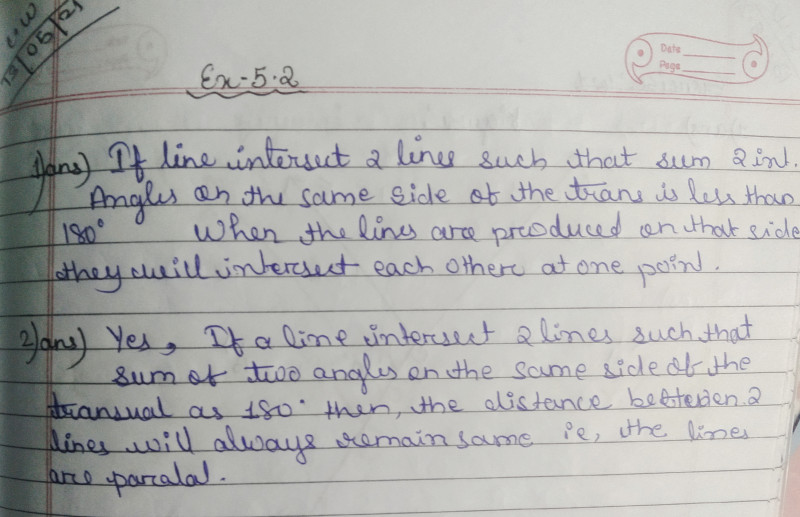 C.W
13/05/21
Date
Page
Ex-5.2
1)ans) If line intersect 2 lines such that sum 2 int.
Angles on the same side of the trans is less than
180° When the lines are produced on that side
they will intersect each other at one point.
2)ans) Yes, If a line intersect 2 lines such that
sum of two angles on the same side of the
transual as 180° then, the distance between 2
lines will always remain same ie, the lines
are paralal.